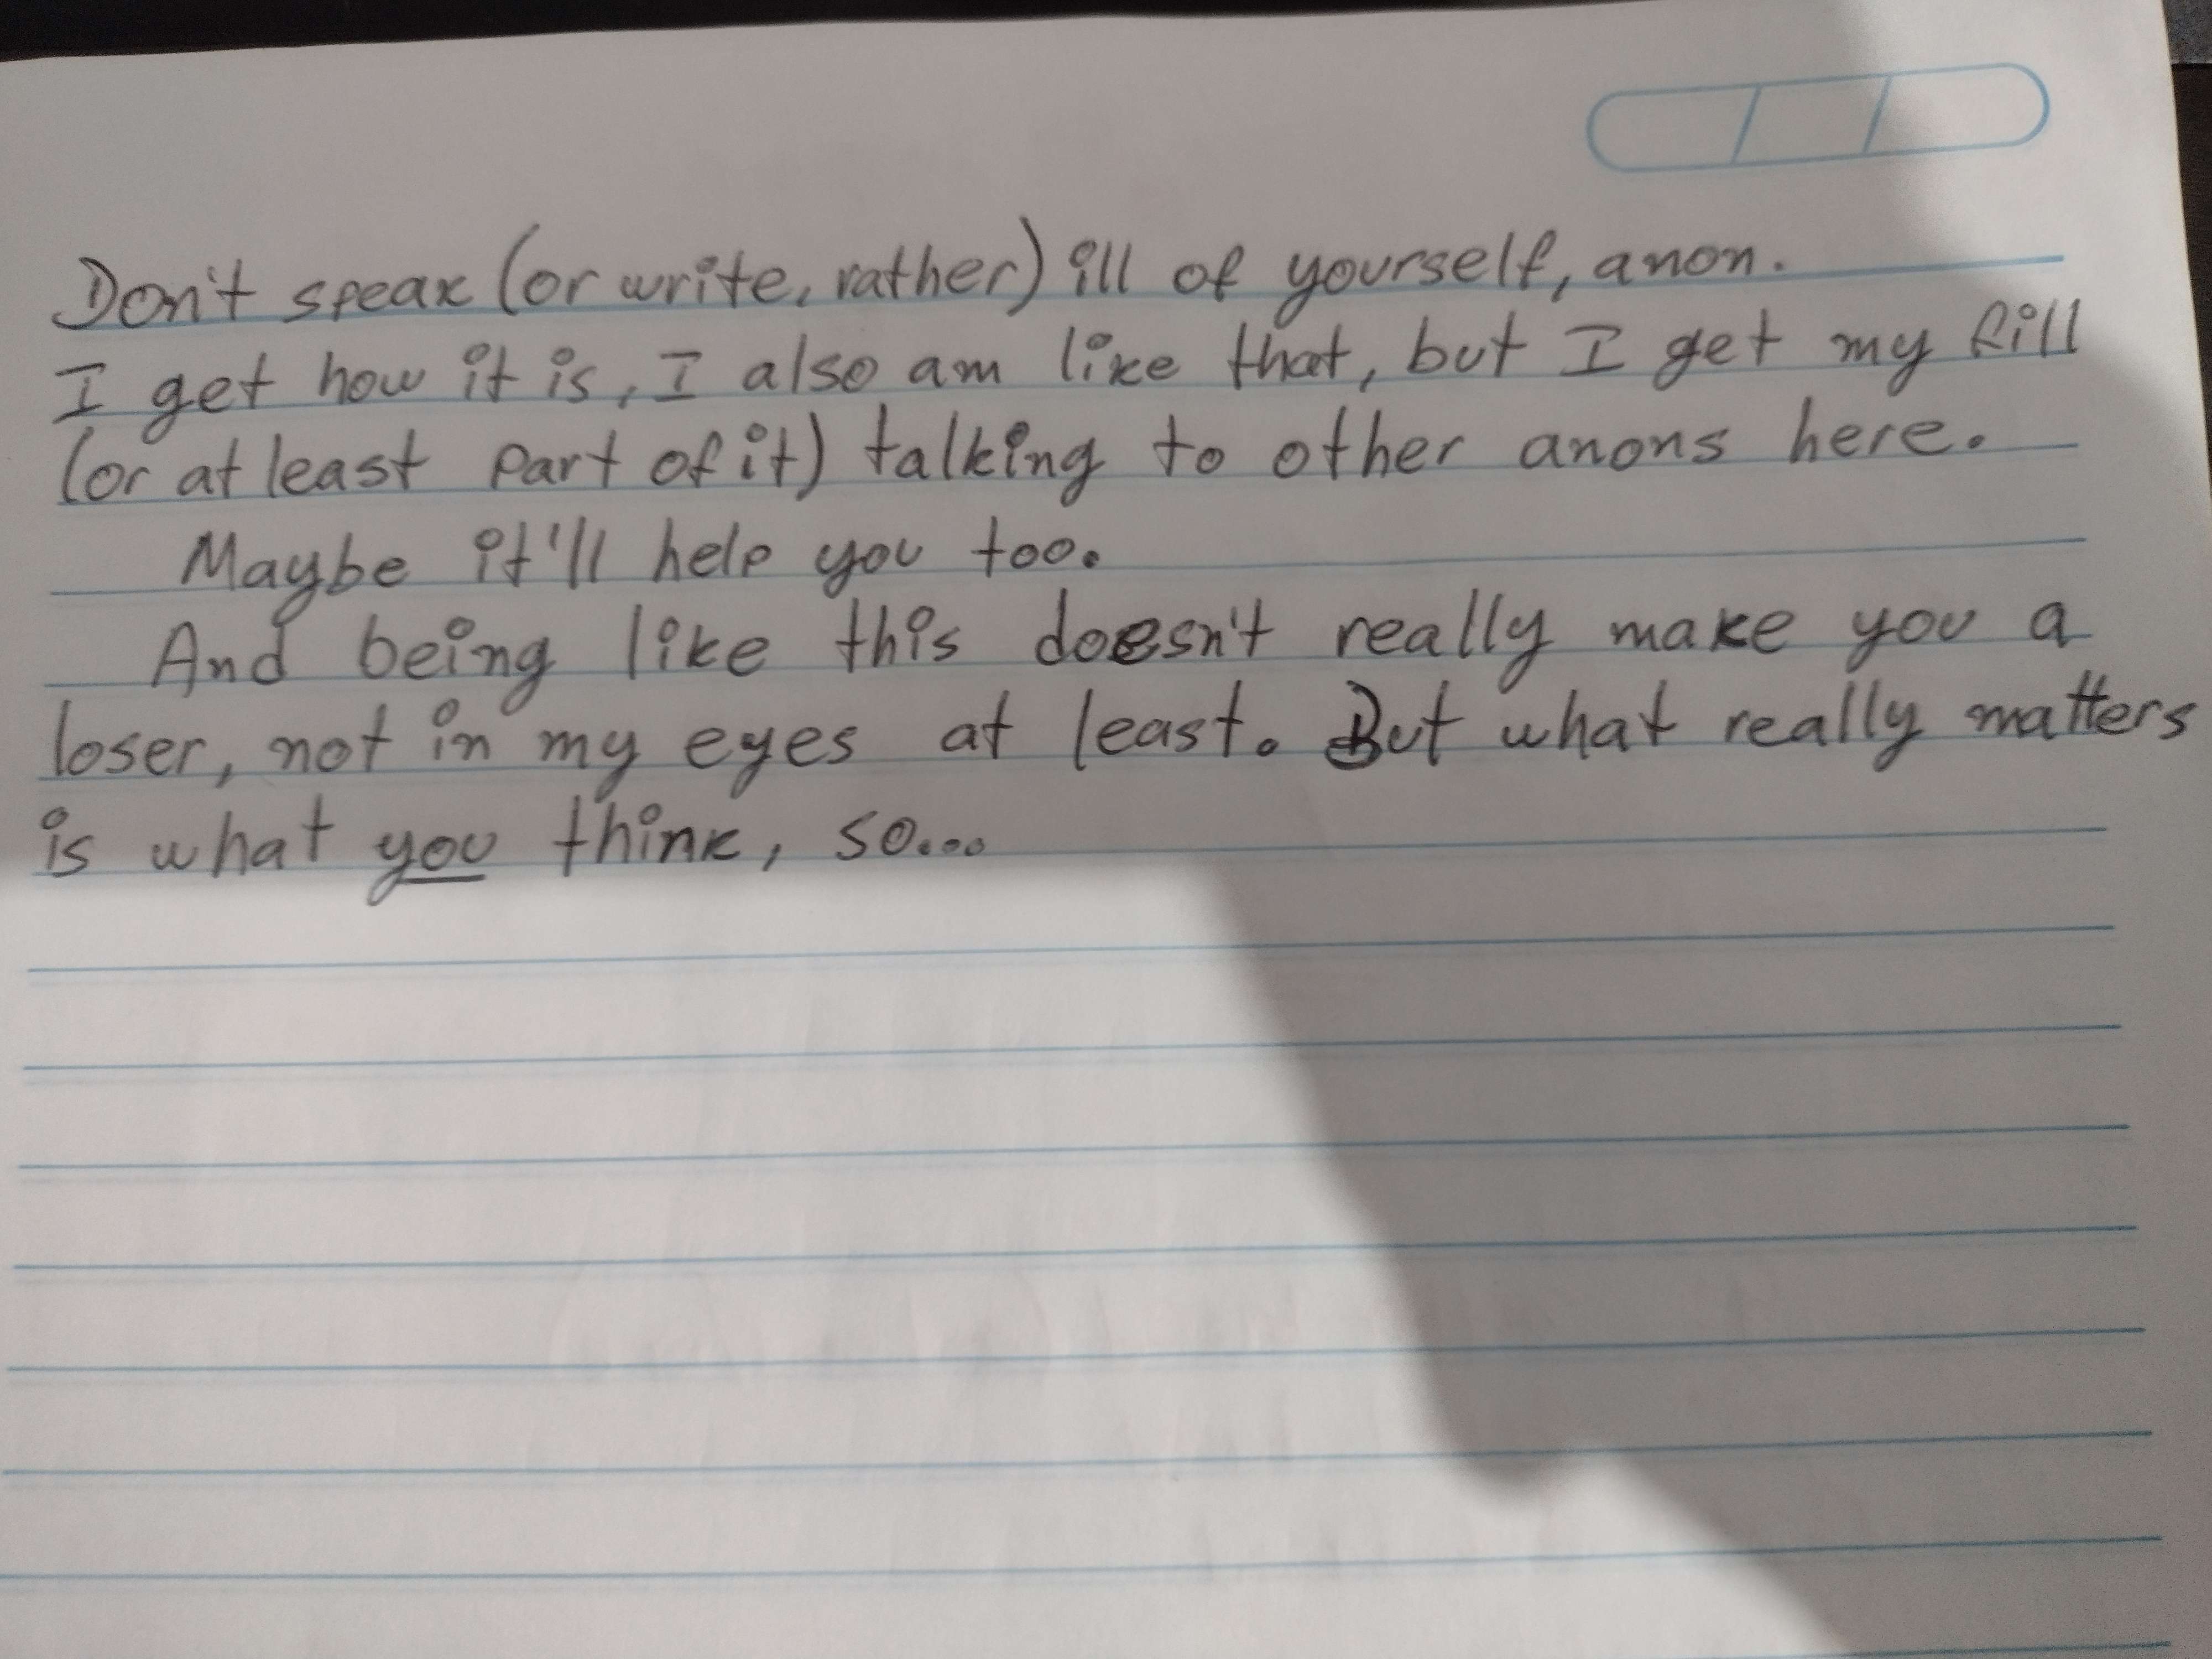 Don't speak (or write, rather) ill of yourself, anon.
I get how it is, I also am like that, but I get my fill
(or at least part of it) talking to other anons here.
Maybe it'll help you too.
And being like this doesn't really make you a
loser, not in my eyes at least. But what really matters
is what you think, so...